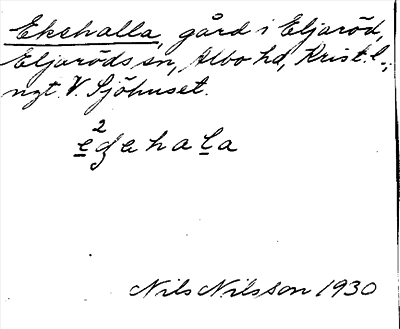 Ekehalla, gård i Eljaröd,
Eljaröds sn, Albo hd, Krist. l.,
ngt V. Sjöhuset.
e²gehala
Nils Nilsson 1930